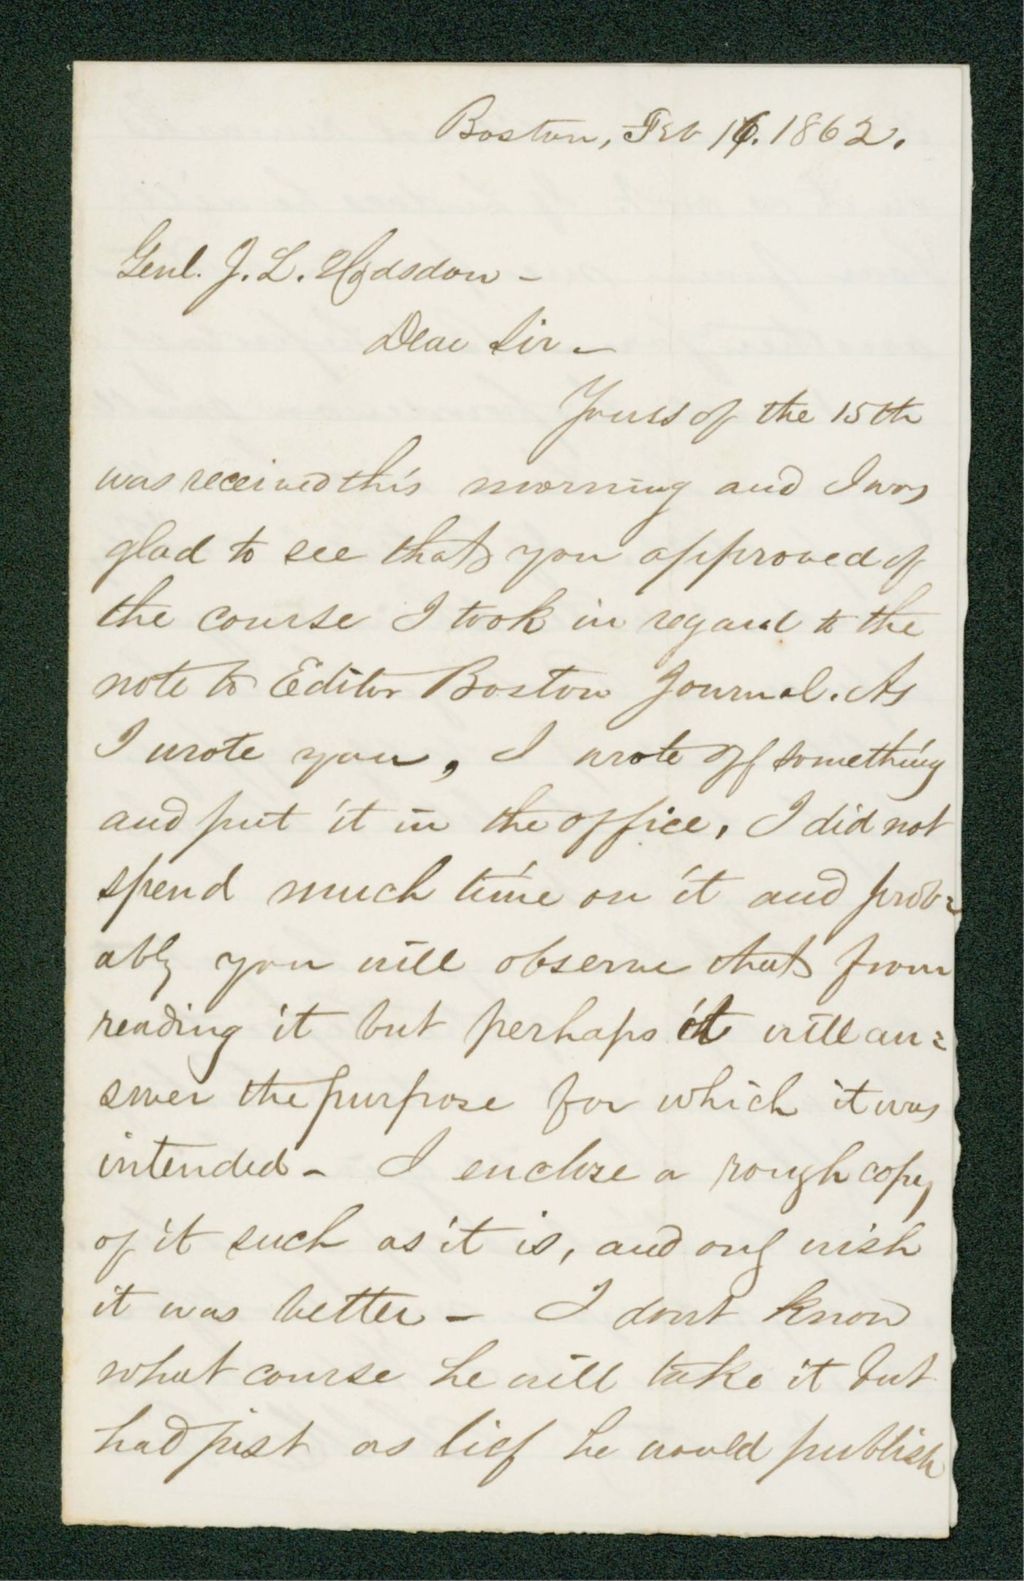 Boston, Feb 16. 1862.
Genl. J. L. Hodsdon -
Dear Sir -
Yours of the 15th
was received this morning and I was
glad to see that you approved of
the course I took in regard to the
note to Editor Boston Journal. As
I wrote you, I wrote off something
and put it in the office, I did not
spend much time on it and prob=
ably you will observe that from
reading it but perhaps it will an=
swer the purpose for which it was
intended - I enclose a rough copy
of it such as it is, and only wish
it was better - I dont know
what course he will take it but
had just as lief he would publish